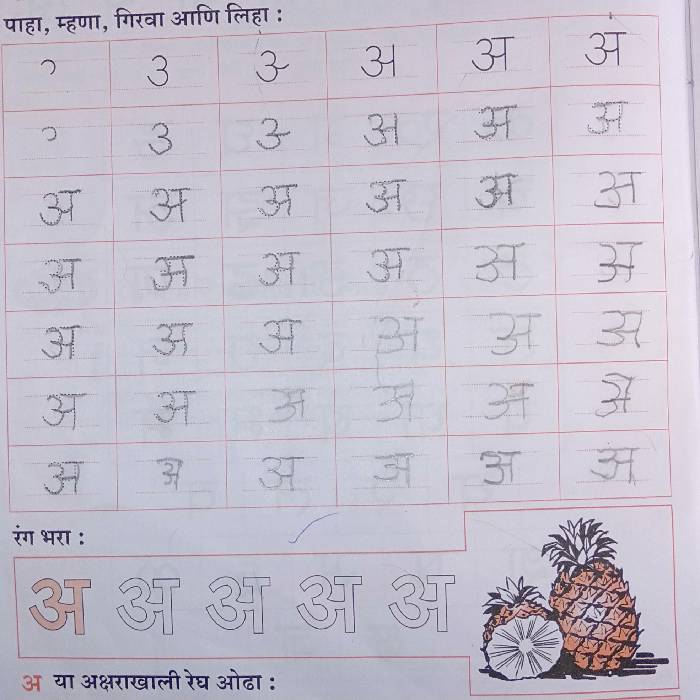 पाहा, म्हणा, गिरवा आणि लिहा :
૧ 3 अ अ अ
अ अ अ
अ अ अ अ अ अ
अ अ अ अ अ अ
अ अ अ अ अ अ
अ अ अ अ अ अ
अ अ अ अ अ अ
रंग भरा :
अ अ अ अ अ
अ या अक्षराखाली रेघ ओढा :